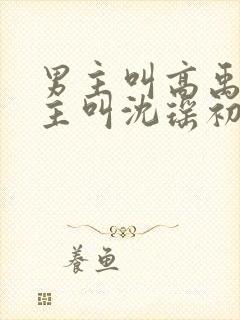 男主叫高禹
主叫沈瑶初
養鱼